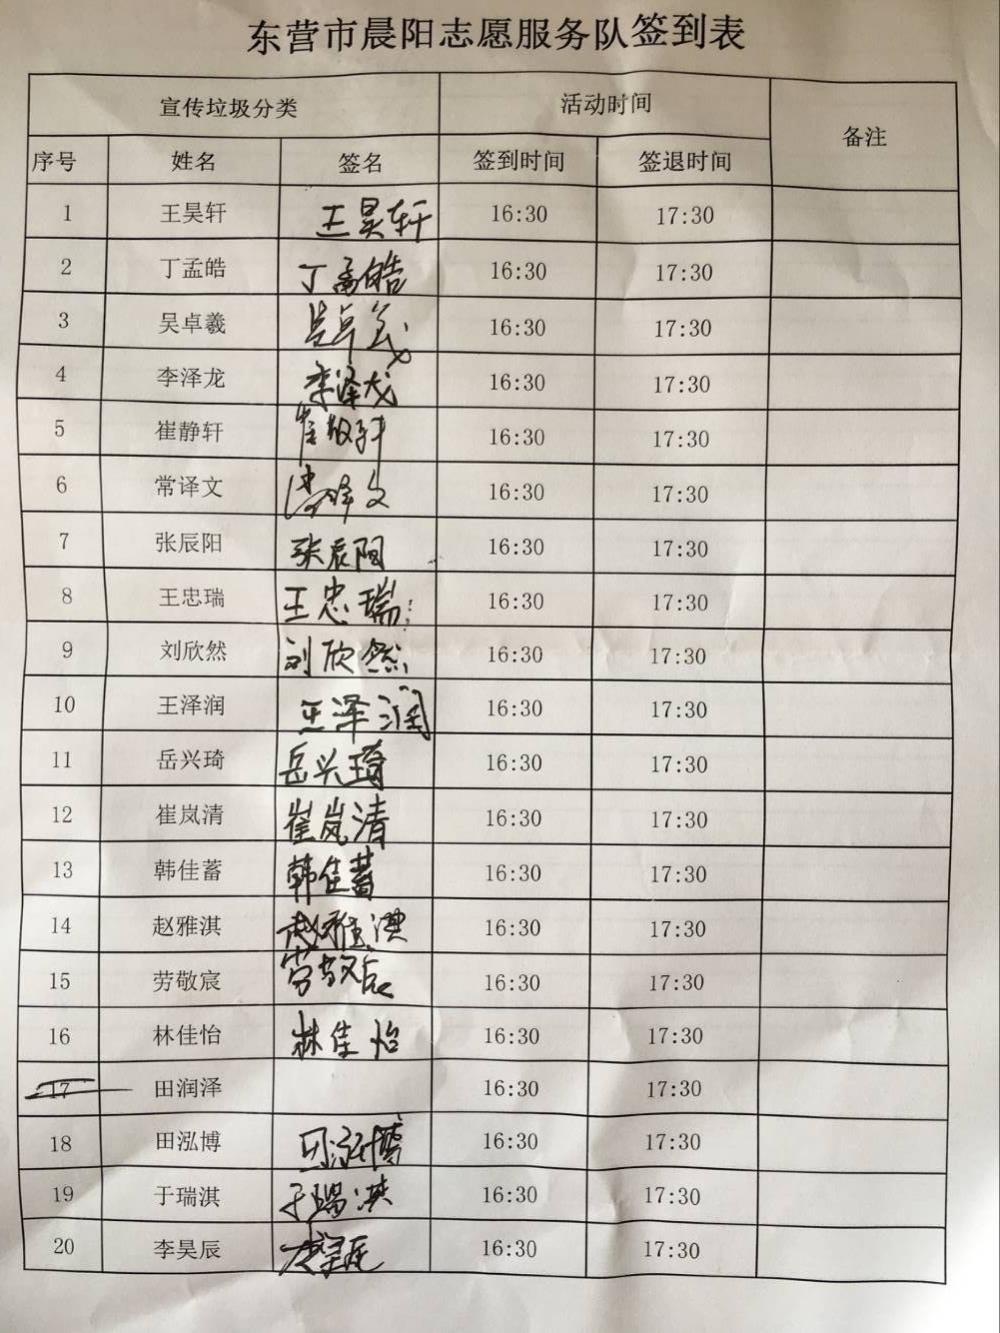 东营市晨阳志愿服务队签到表
宣传垃圾分类 活动时间 备注
序号 姓名 签名 签到时间 签退时间
1 王昊轩 王昊轩 16:30 17:30
2 丁孟皓 丁孟皓 16:30 17:30
3 吴卓羲 吴卓羲 16:30 17:30
4 李泽龙 李泽龙 16:30 17:30
5 崔静轩 16:30 17:30
6 常译文 常译文 16:30 17:30
7 张辰阳 张辰阳 16:30 17:30
8 王忠瑞 王忠瑞 16:30 17:30
9 刘欣然 刘欣然 16:30 17:30
10 王泽润 王泽润 16:30 17:30
11 岳兴琦 岳兴琦 16:30 17:30
12 崔岚清 崔岚清 16:30 17:30
13 韩佳蓄 韩佳蓄 16:30 17:30
14 赵雅淇 赵雅淇 16:30 17:30
15 劳敬宸 劳敬宸 16:30 17:30
16 林佳怡 林佳怡 16:30 17:30
17 田润泽 16:30 17:30
18 田泓博 田泓博 16:30 17:30
19 于瑞淇 于瑞淇 16:30 17:30
20 李昊辰 李昊辰 16:30 17:30